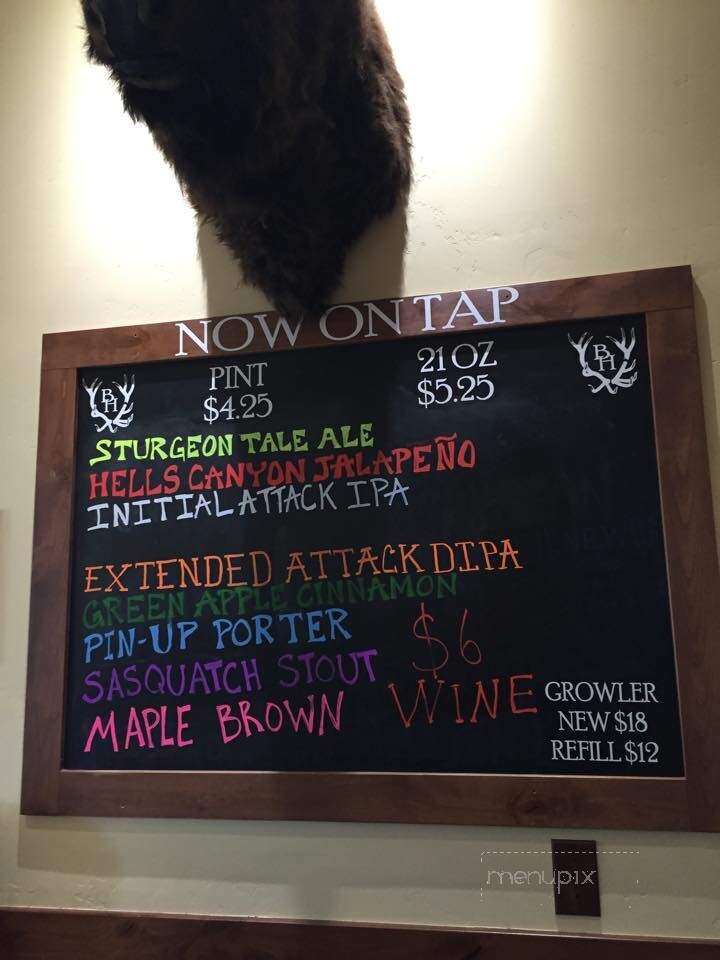 NOW ON TAP
PINT
$4.25
21 OZ
$5.25
BH
BH
STURGEON TALE ALE
HELLS CANYON JALAPEÑO
INITIAL ATTACK IPA
EXTENDED ATTACK DIPA
GREEN APPLE CINNAMON
PIN-UP PORTER
SASQUATCH STOUT
MAPLE BROWN
$6
WINE
GROWLER
NEW $18
REFILL $12
menupix